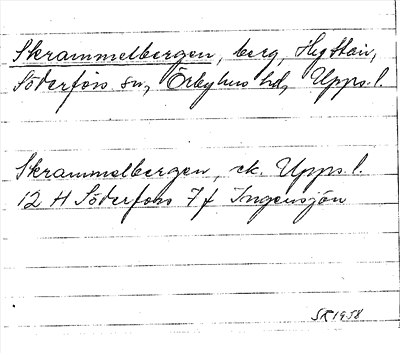 Skrammelbergen, berg, Hyttön,
Söderfors sn, Örbyhus hd, Upps. l.
Skrammelbergen, ek. Upps. l.
12 H Söderfors 7 f Ingensjön
SR 1958